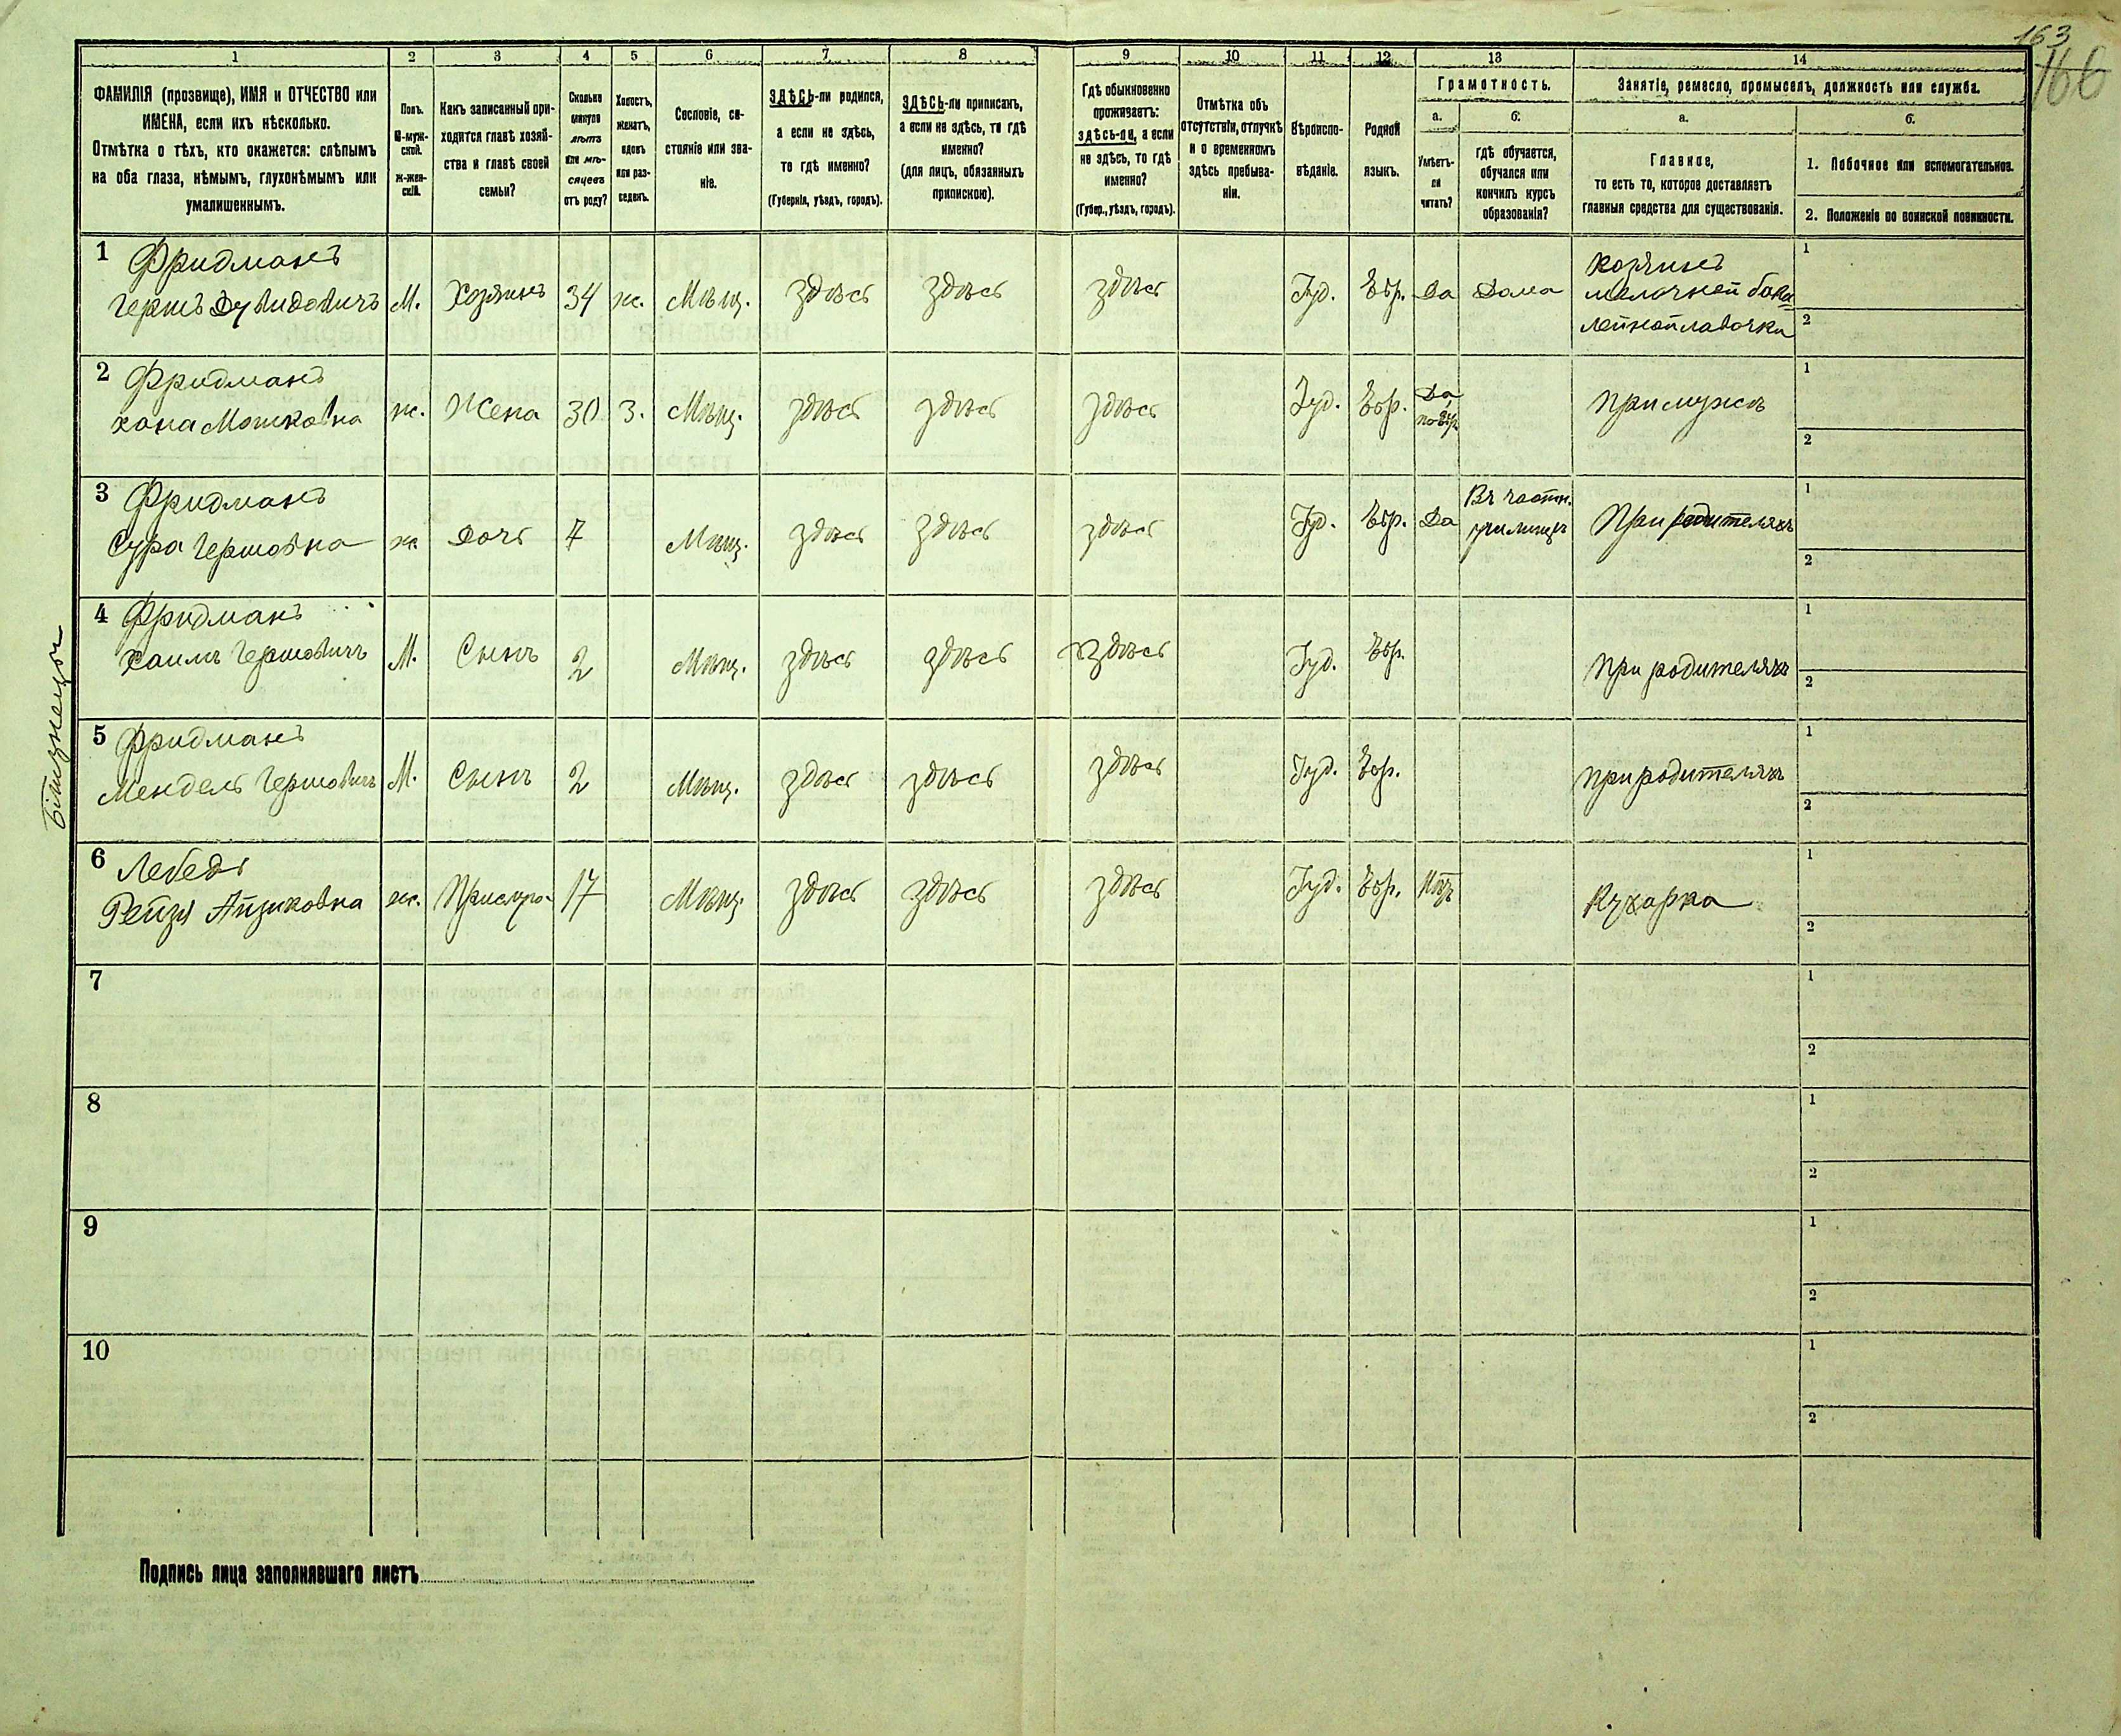 163
166
1 2 3 4 5 6 7 8 9 10 11 12 13 14
ФАМИЛІЯ (прозвище), ИМЯ и ОТЧЕСТВО или
ИМЕНА, если ихъ нѣсколько.
Отмѣтка о тѣхъ, кто окажется: слѣпымъ
на оба глаза, нѣмымъ, глухонѣмымъ или
умалишеннымъ.
Полъ.
М-муж-
ской.
ж-жен-
скій.
Какъ записанный при-
ходится главѣ хозяй-
ства и главѣ своей
семьи?
Сколько
минуло
лѣтъ
или мѣ-
сяцевъ
отъ роду?
Холостъ,
женатъ,
вдовъ
или раз-
веденъ.
Сословіе, со-
стояніе или зва-
ніе.
ЗДѢСЬ-ли родился,
а если не здѣсь,
то гдѣ именно?
(Губернія, уѣздъ, городъ).
ЗДѢСЬ-ли приписан,
а если не здѣсь, то гдѣ
именно?
(для лицъ, обязанныхъ
припискою).
Гдѣ обыкновенно
проживаетъ:
здѣсь-ли, а если
не здѣсь, то гдѣ
именно?
(Губер., уѣздъ, городъ).
Отмѣтка объ
отсутствіи, отлучкѣ
и о временномъ
здѣсь пребыва-
ніи.
Вѣроиспо-
вѣданіе.
Родной
языкъ.
Грамотность.
а.
Умѣетъ-
ли
читать?
б.
гдѣ обучается,
обучался или
кончилъ курсъ
образованія?
Занятіе, ремесло, промыселъ, должность или служба.
а.
Главное,
то есть то, которое доставляетъ
главныя средства для существованія.
б.
1. Побочное или вспомогательное.
2. Положеніе по воинской повинности.
1 Фридманъ
Гершъ Дувидовичъ М. Хозяинъ 34 ж. Мѣщ. здѣсь здѣсь здѣсь Іуд. Евр. Да Дома
Хозяинъ
мелочной бака
лейной лавочки
1
2
2 Фридманъ
Хана Мошковна ж. Жена 30 З. Мѣщ. здѣсь здѣсь здѣсь Іуд. Евр. Да
по евр.
при мужѣ
1
2
3 Фридманъ
Сура Гершовна ж Дочь 7 Мѣщ. здѣсь здѣсь здѣсь Іуд. Евр. Да
Въ частн.
училищѣ
При родителяхъ
1
2
4 Фридманъ
Хаимъ Гершовичъ М. Сынъ 2 Мѣщ. здѣсь здѣсь здѣсь Іуд. Евр. При родителяхъ
1
2
близнецы
5 Фридманъ
Мендель Гершовичъ М. Сынъ 2 Мѣщ. здѣсь здѣсь здѣсь Іуд. Евр. при родителяхъ
1
2
6 Лебедь
Рейзя Айзиковна ж. Прислуга 17 Мѣщ. здѣсь здѣсь здѣсь Іуд. Евр. Нѣтъ Кухарка
1
2
7
1
2
8
1
2
9
1
2
10
1
2
Подпись лица заполнявшаго листъ